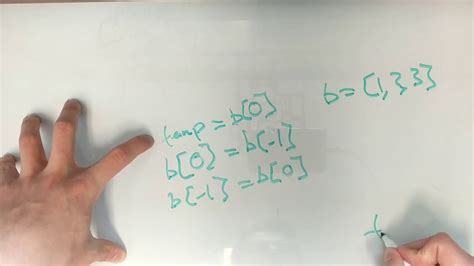 temp = b[0]
b[0] = b[-1]
b[-1] = b[0]
b = [1, 3 3]
t